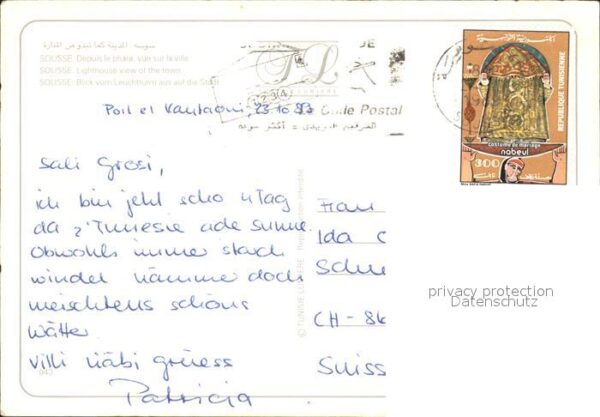 سوسة. المدينة كما تبدو من المنارة
SOUSSE: Depuis le phare, vue sur la ville
SOUSSE: Lighthouse view of the town
SOUSSE: Blick vom Leuchtturm aus auf die Stadt
Port el Kantaoui, 23.10.93
Code Postal
REPUBLIQUE TUNISIENNE
costume de mariage
nabeul
300
Sali Grosi,
ich bin jetzt scho
da z'Tunesie ade Sunne
Obwohls immer starch
windet hämmer doch
meischtens schöns
Wätter
Villi liäbi grüess
Patricia
© TUNISIE LUMIERE
Frau
Ida C
CH - 86
Suiss
privacy protection
Datenschutz